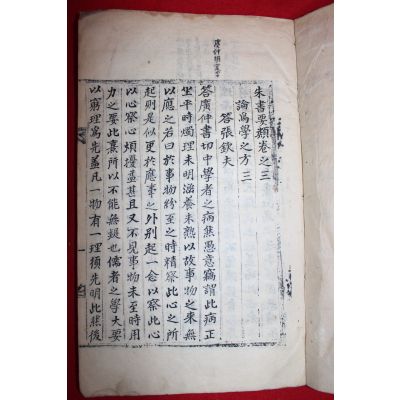 朱書要類卷之三
論爲學之方三
答張欽夫
答廣仲書切中學者之病然愚意竊謂此病正
坐平時燭理未明涵養未熟以故事物之來無
以應之若曰於事物紛至之時精察此心之所
起則是似更於應事之外別起一念以察此心
以心察心煩擾益甚且又不見事物未至時用
力之要此熹所以不能無疑也儒者之學大要
以窮理爲先蓋凡一物有一理須先明此然後